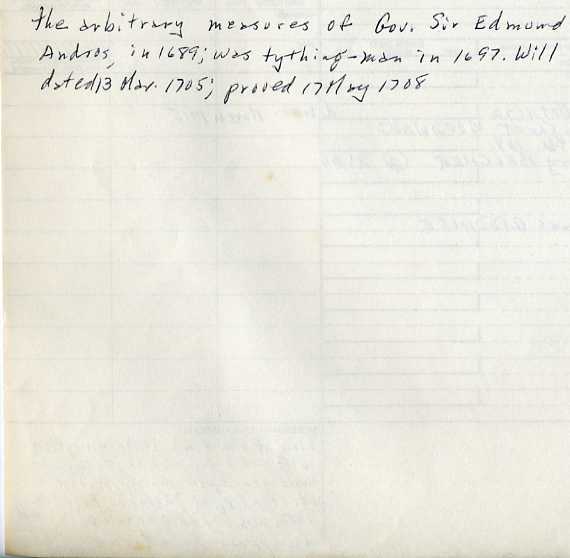 the arbitrary measures of Gov. Sir Edmund
Andros, in 1689; was tything-man in 1697. Will
dated 13 Mar. 1705; proved 17 May 1708